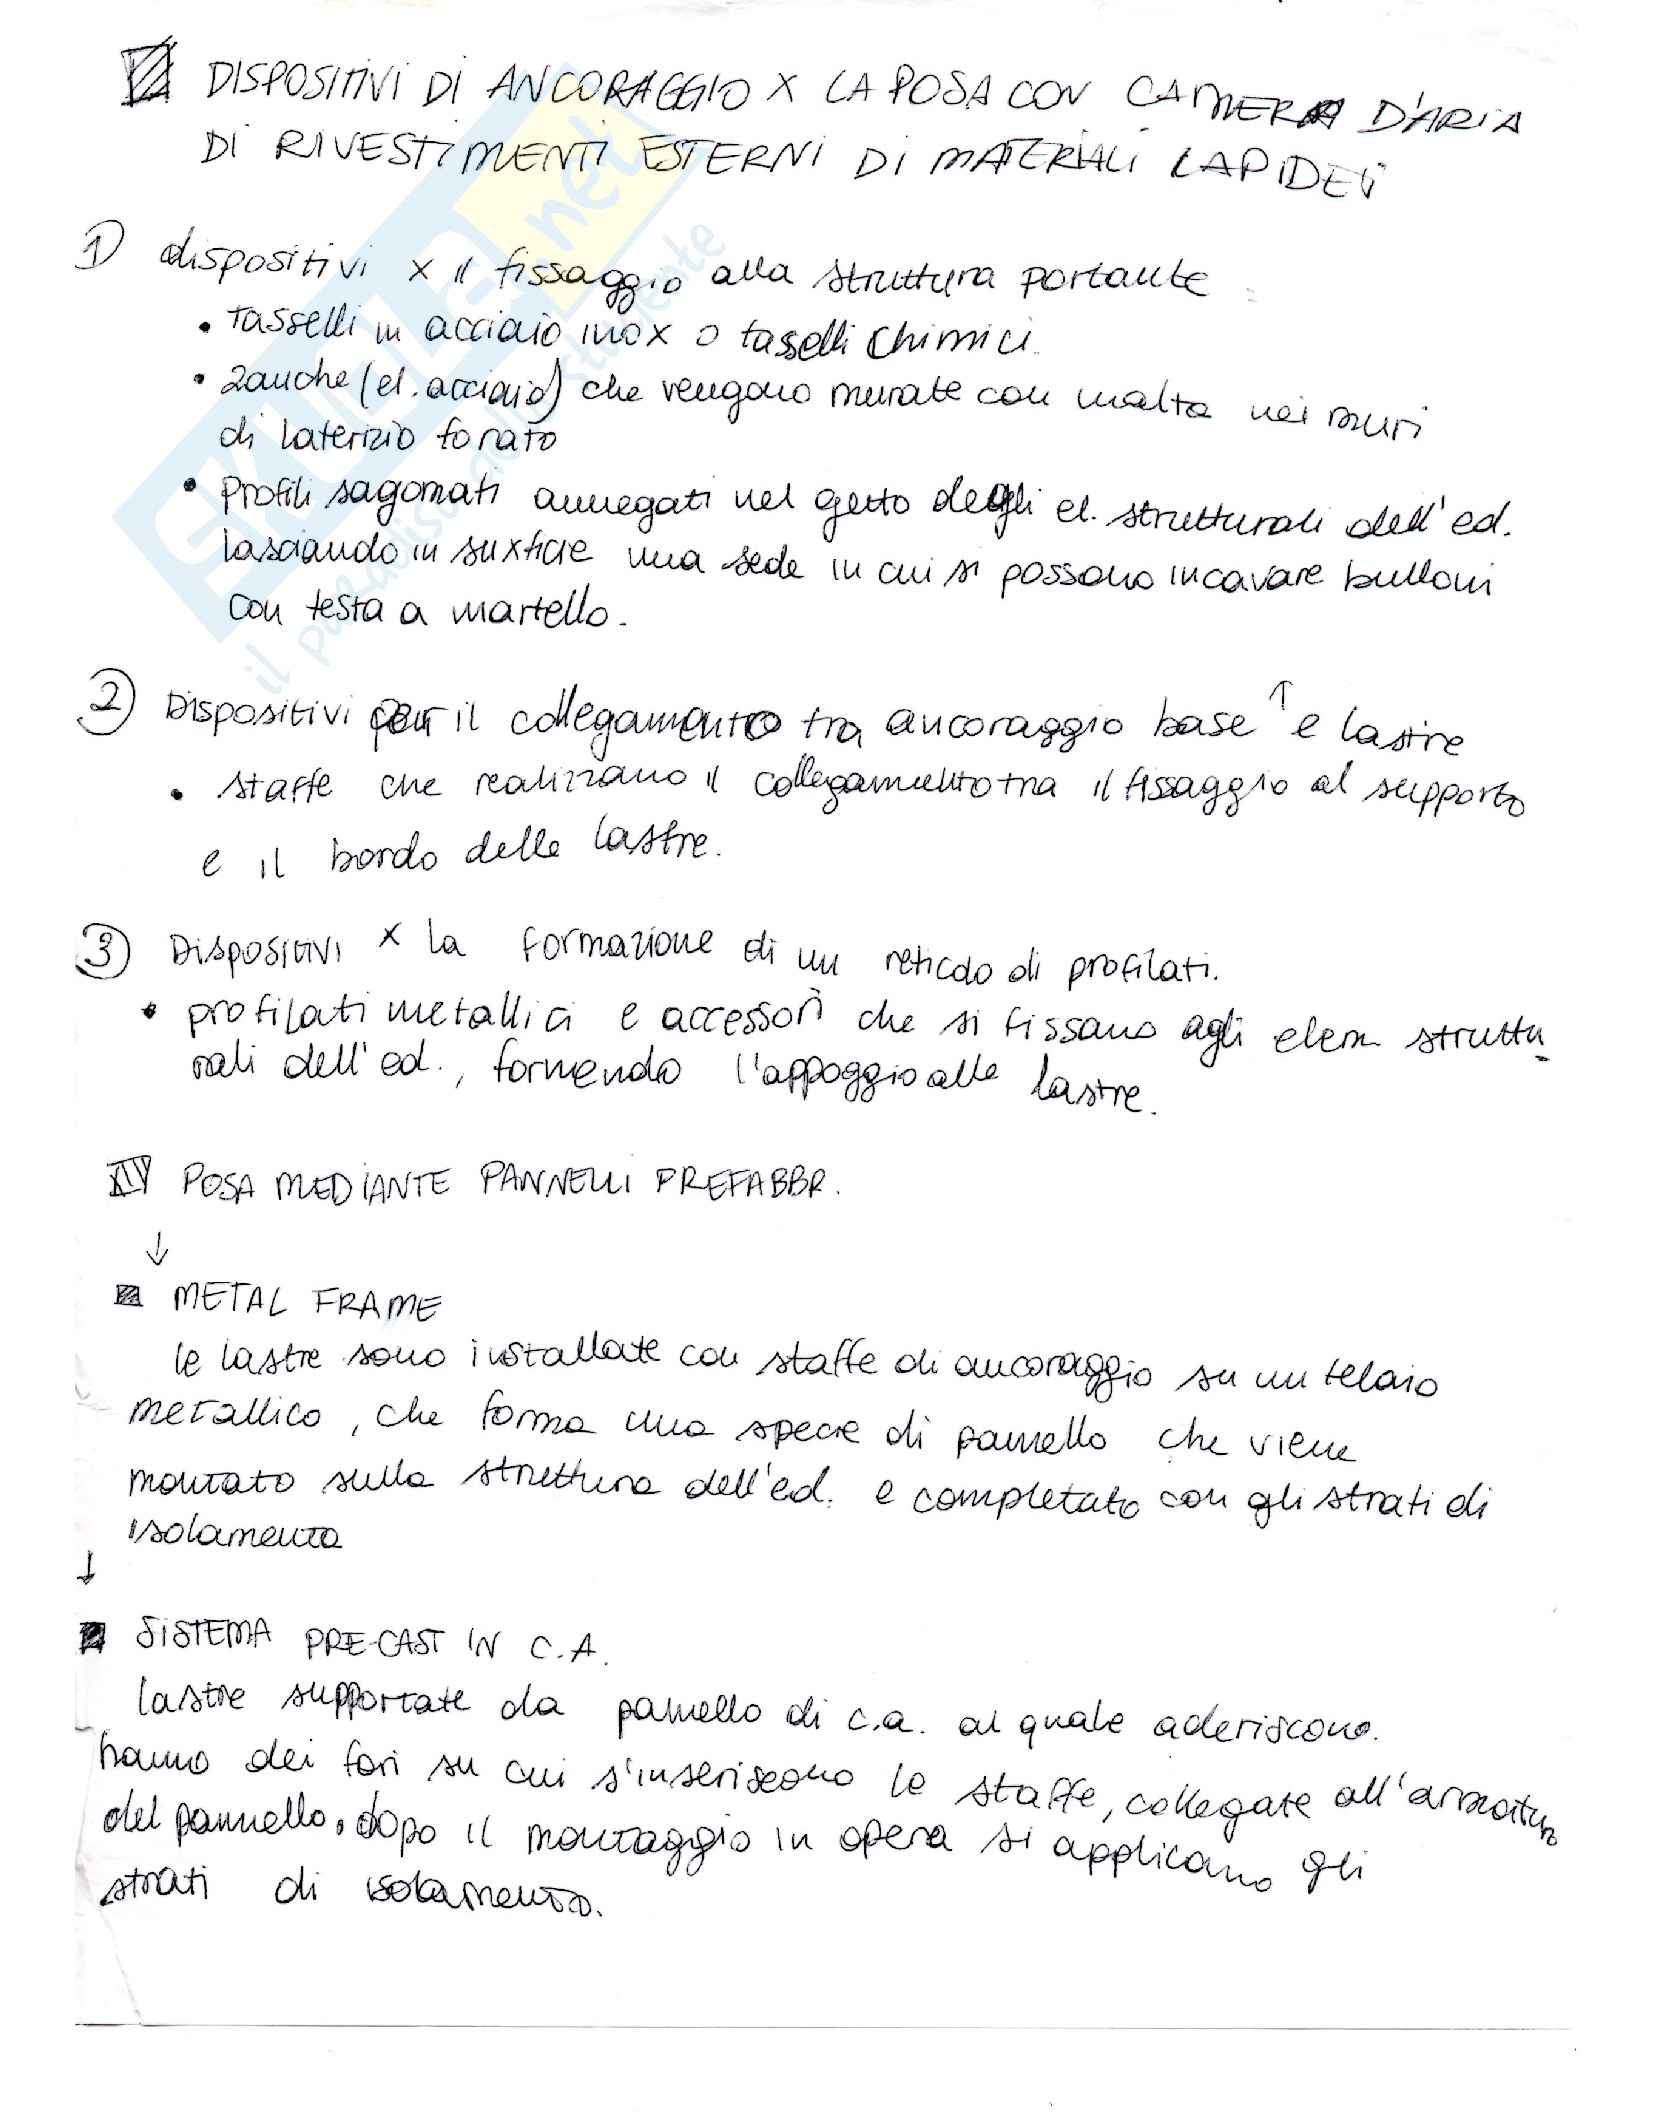 DISPOSITIVI DI ANCORAGGIO X LA POSA CON CAMERA D'ARIA
DI RIVESTIMENTI ESTERNI DI MATERIALI LAPIDEI
1) dispositivi x il fissaggio alla struttura portante
• Tasselli in acciaio inox o tasselli chimici.
• zanche (el. acciaio) che vengono murate con malta nei muri
di laterizio forato
• profili sagomati annegati nel getto degli el. strutturali dell'ed.
lasciando in suxficie una sede in cui si possono incavare bulloni
con testa a martello.
2) Dispositivi per il collegamento tra ancoraggio base ↑ e lastre
• staffe che realizzano il collegamento tra il fissaggio al supporto
e il bordo delle lastre.
3) Dispositivi x la formazione di un reticolo di profilati.
• profilati metallici e accessori che si fissano agli elem struttu
rali dell'ed., fornendo l'appoggio alle lastre.
IV POSA MEDIANTE PANNELLI PREFABBR.
↓
METAL FRAME
le lastre sono installate con staffe di ancoraggio su un telaio
metallico, che forma una specie di pannello che viene
montato sulla struttura dell'ed. e completato con gli strati di
isolamento
↓
SISTEMA PRE-CAST IN C.A.
lastre supportate da pannello di c.a. al quale aderiscono.
hanno dei fori su cui s'inseriscono le staffe, collegate all'armatura
del pannello. dopo il montaggio in opera si applicano gli
strati di isolamento.
SKUOLA.net
il paradiso dello studente